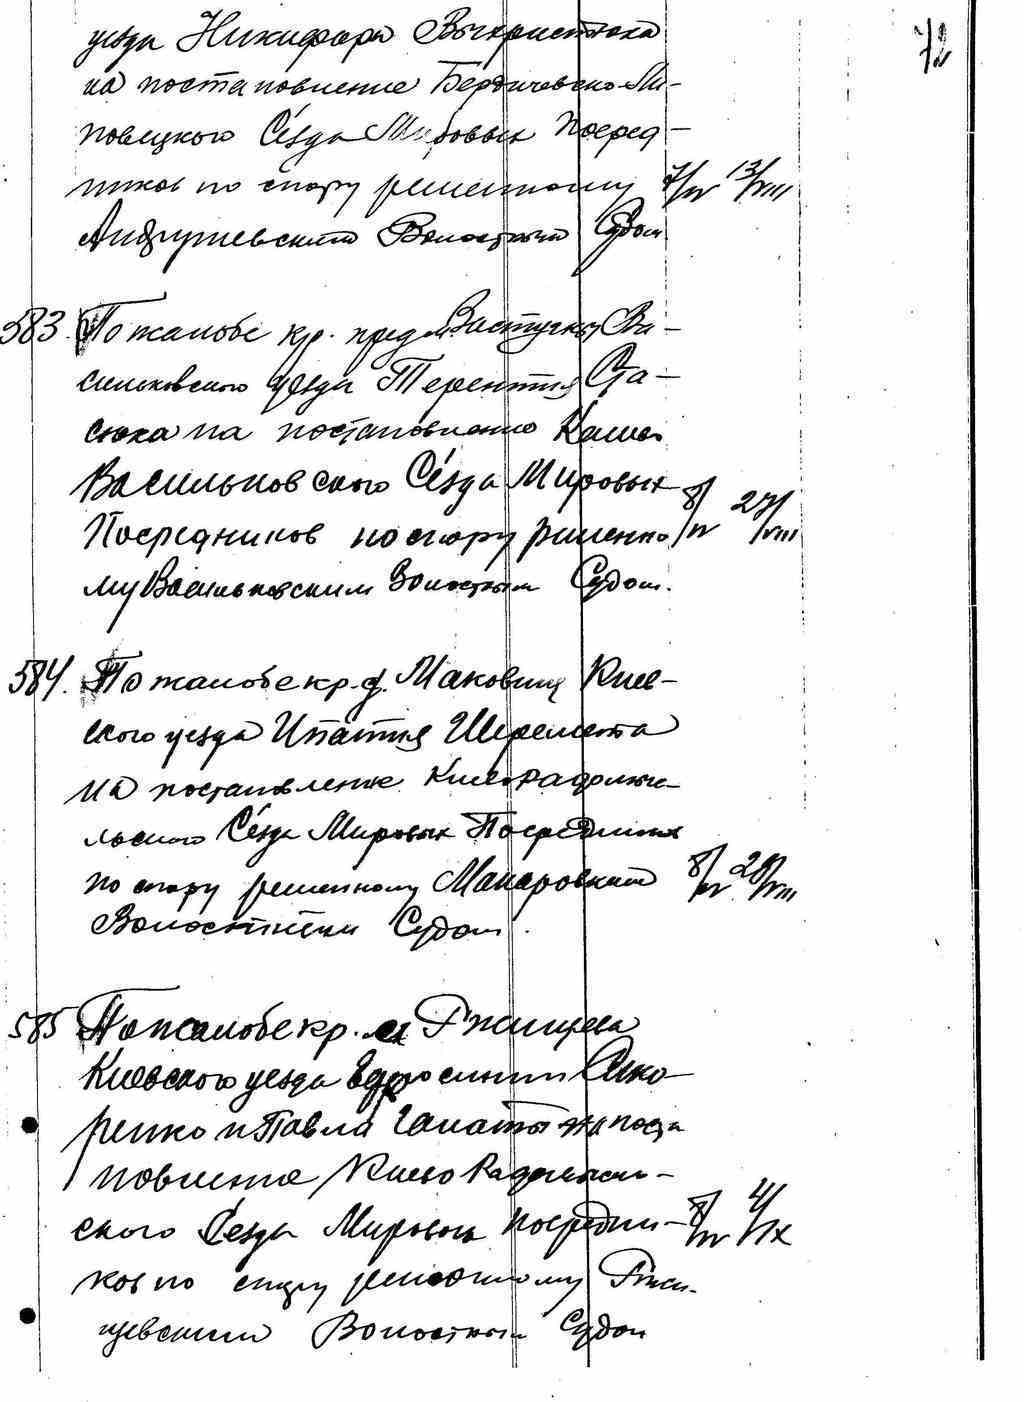 72
уезда Никифора Выхристюка
на постановление Бердичевско-Ли-
повецкого Съезда Мировых Посред-
ников по спору решенному 7/IV 13/VIII
Андрушевским Волостным Судом
583. По жалобе кр. пред. м. Ва-
сильковского уезда Терентия Ста-
сюка на постановление Киево
Васильковского Съезда Мировых
Посредников по спору решенно 8/IV 27/VIII
му Васильковским Волостным Судом.
584. По жалобе кр. д. Маковищ Киев-
ского уезда Ипатия Шеремета
на постановление Киево Радомы-
льского Съезда Мировых Посредников
по спору решенному Макаровским 8/IV 28/VIII
Волостным Судом.
585 По жалобе кр. м. Ржищева
Киевского уезда
ренко и Павла на поста
новление Киево Радомысль-
ского Съезда Мировых Посредни- 8/IV 4/IX
ков по спору решенному Ржи-
щевским Волостным Судом